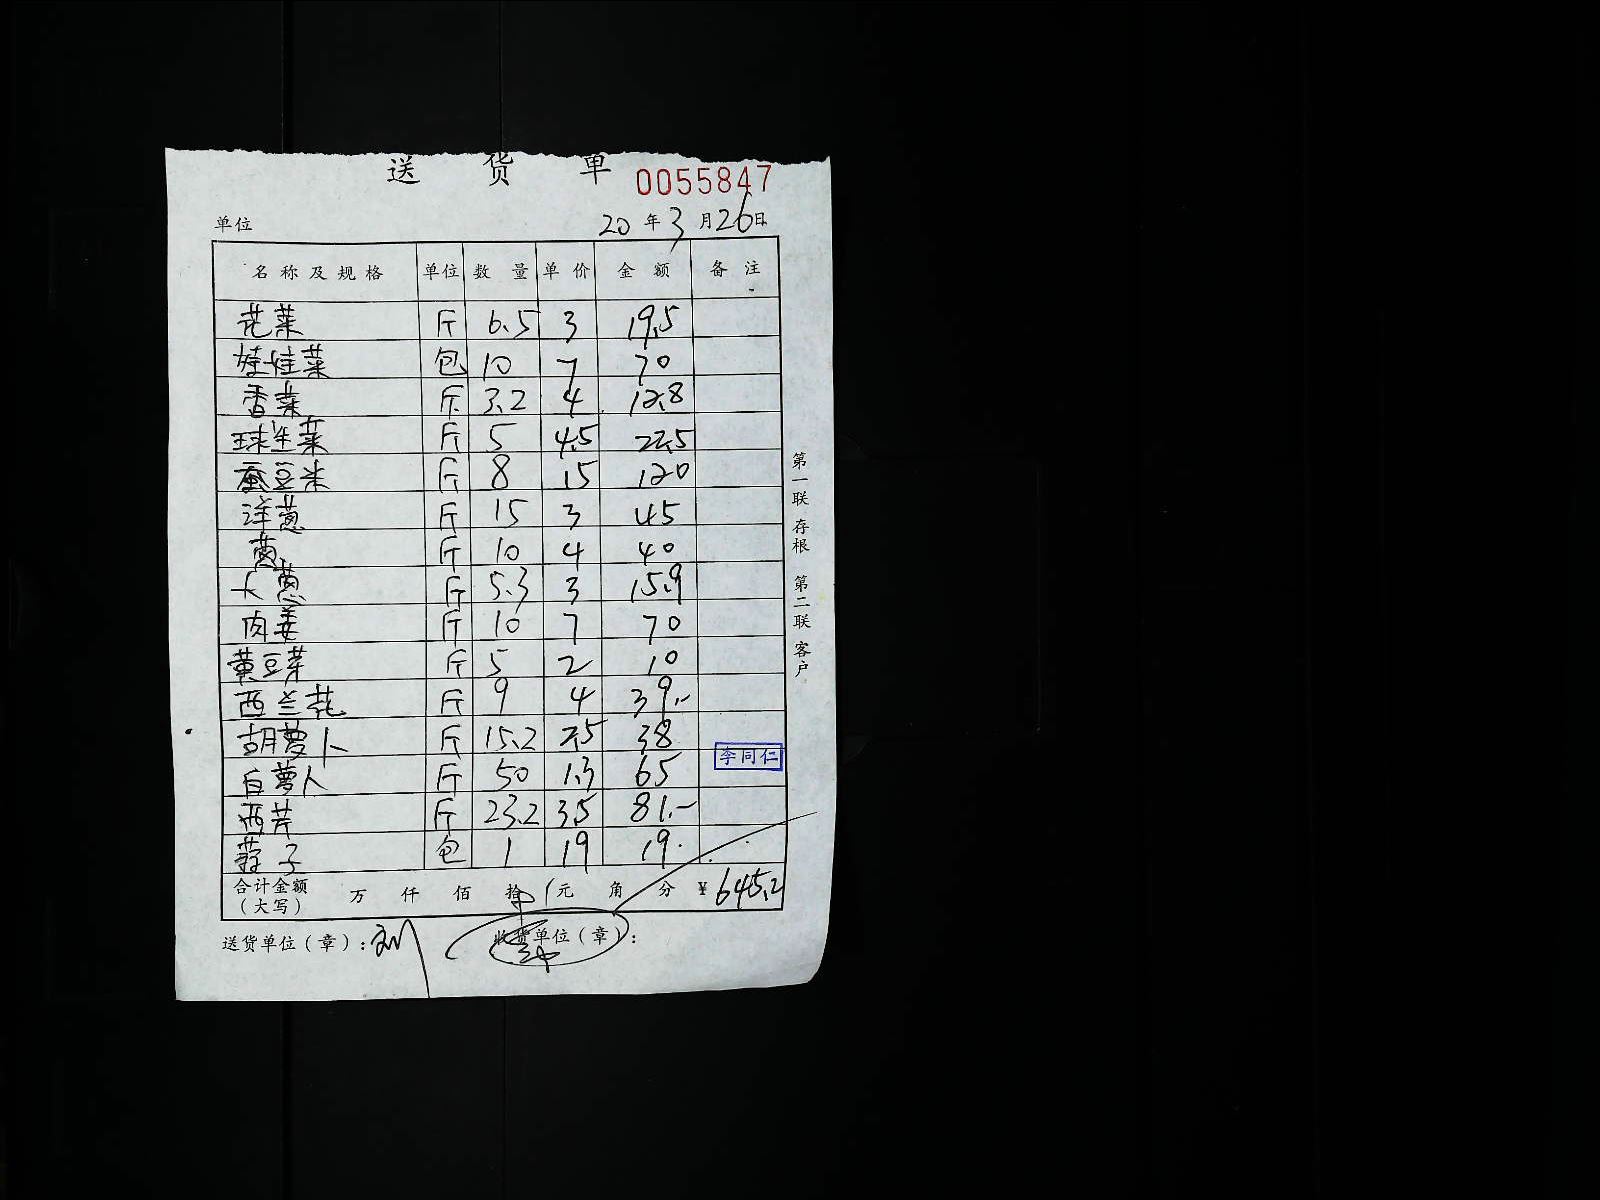 送货单
0055847
单位 20年3月26日
名称及规格 单位 数量 单价 金额 备注
花菜 斤 6.5 3 19.5
娃娃菜 包 10 7 70
香菜 斤 3.2 4 12.8
球生菜 斤 5 4.5 22.5
蚕豆米 斤 8 15 120
洋葱 斤 15 3 45
斤 10 4 40
大葱 斤 5.3 3 15.9
肉姜 斤 10 7 70
黄豆芽 斤 5 2 10
西兰花 斤 9 4 39.-
胡萝卜 斤 15.2 2.5 38
白萝卜 斤 50 1.3 65
西芹 斤 23.2 3.5 81.-
包 1 19 19.
李同仁
合计金额（大写） 万 仟 佰 拾 元 角 分 ¥645.2
送货单位（章）：刘
收货单位（章）：
第一联 存根 第二联 客户